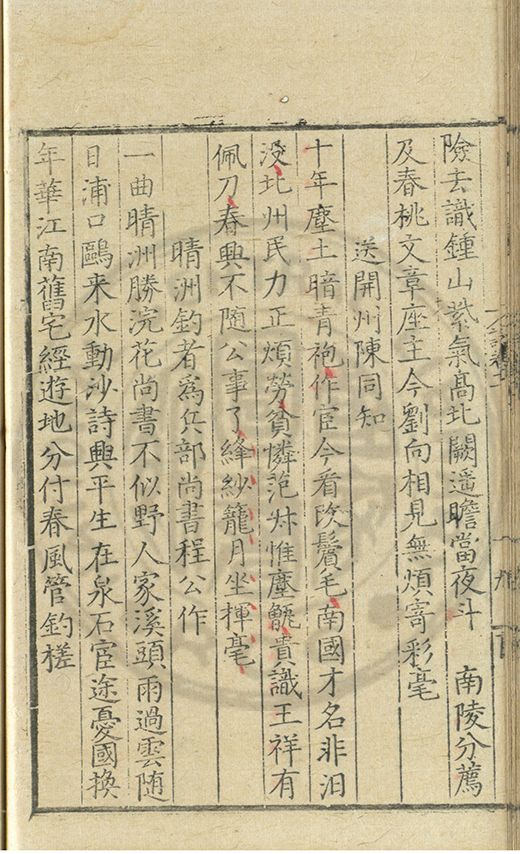 險去識鍾山紫氣髙北闕遥瞻當夜斗　南陵分薦
及春桃文章座主今劉向相見無煩寄彩毫
送開州陳同知
十年塵土暗青袍作宦今看改鬢毛南國才名非汨
没北州民力正煩勞貧憐范妚惟塵甑貴識王祥有
佩刀春興不随公事了絳紗籠月坐揮毫
晴洲釣者為兵部尚書程公作
一曲晴洲勝浣花尚書不似野人家溪頭雨過雲随
目浦口鷗来水動沙詩興平生在泉石宦途憂國換
年華江南舊宅經遊地分付春風管釣槎